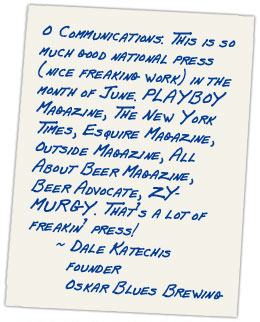 O COMMUNICATIONS. THIS IS SO
MUCH GOOD NATIONAL PRESS
(NICE FREAKING WORK) IN THE
MONTH OF JUNE. PLAYBOY
MAGAZINE, THE NEW YORK
TIMES, ESQUIRE MAGAZINE,
OUTSIDE MAGAZINE, ALL
ABOUT BEER MAGAZINE,
BEER ADVOCATE, ZY-
MURGY. THAT'S A LOT OF
FREAKIN' PRESS!
~ DALE KATECHIS
FOUNDER
OSKAR BLUES BREWING